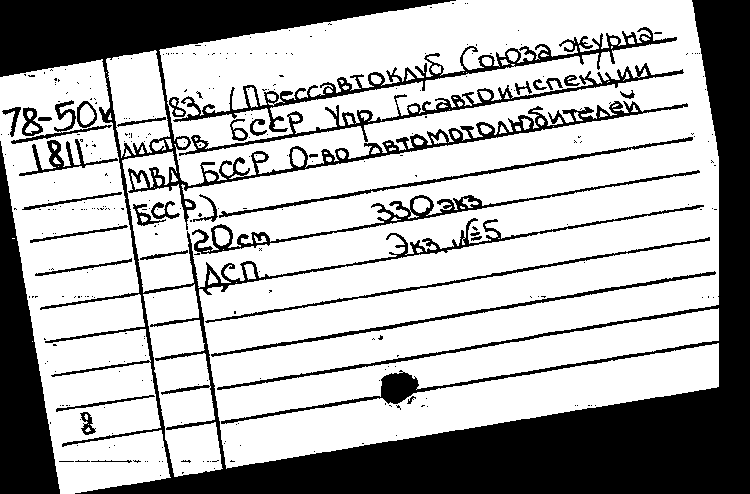 78-50к
1811
83с (Прессавтоклуб Союза журна-
листов БССР. Упр. Госавтоинспекции
МВД БССР. О-во автомотолюбителей
БССР.).
20 см 330 экз
ДСП. Экз. №5
8